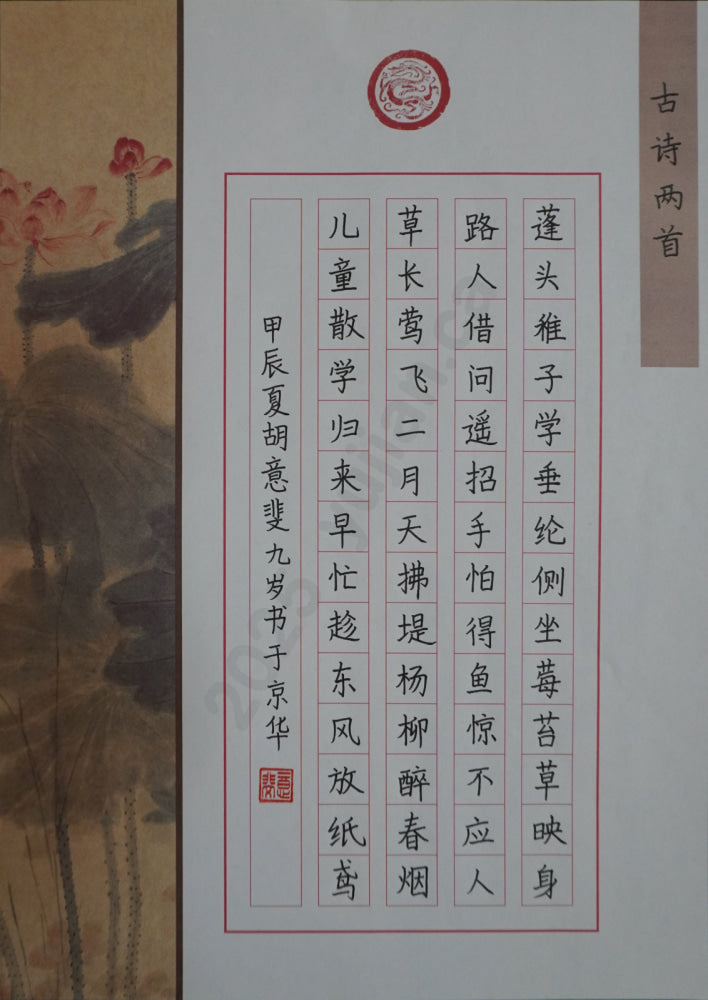 古诗两首
蓬头稚子学垂纶侧坐莓苔草映身
路人借问遥招手怕得鱼惊不应人
草长莺飞二月天拂堤杨柳醉春烟
儿童散学归来早忙趁东风放纸鸢
甲辰夏胡意斐九岁书于京华
意斐